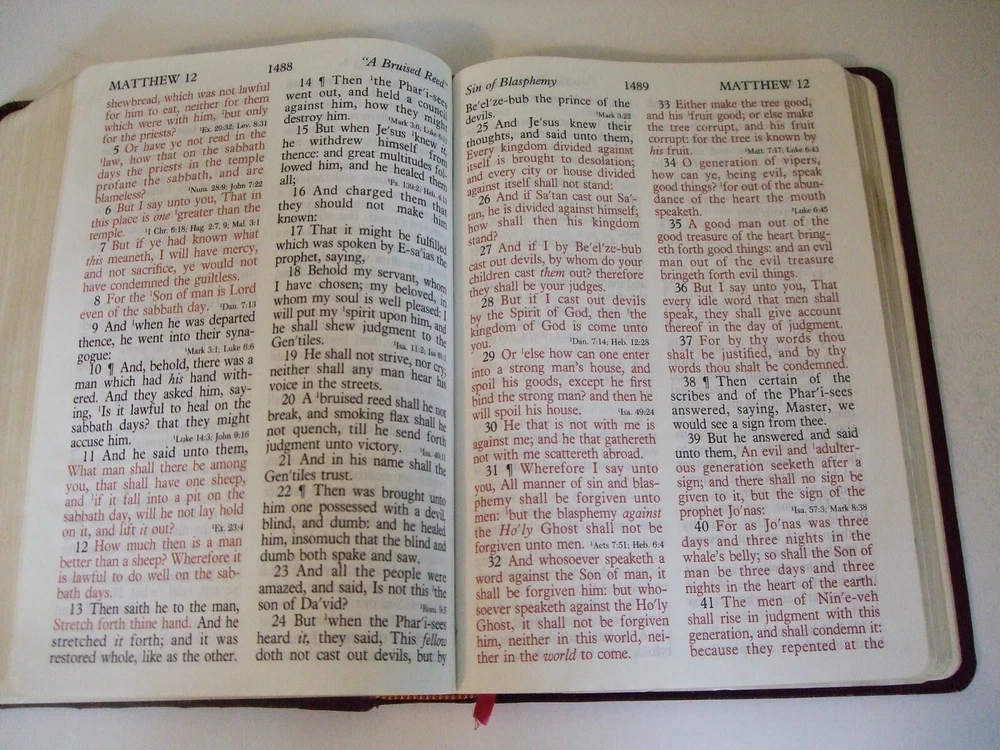 MATTHEW 12
1488
"A Bruised Reed"
shewbread, which was not lawful
for him to eat, neither for them
which were with him, ¹but only
for the priests? ¹Ex. 29:32; Lev. 8:31
5 Or have ye not read in the
¹law, how that on the sabbath
days the priests in the temple
profane the sabbath, and are
blameless? ¹Num. 28:9; John 7:22
6 But I say unto you, That in
this place is one ¹greater than the
temple. ¹1 Chr. 6:18; Hag. 2:7, 9; Mal. 3:1
7 But if ye had known what
this meaneth, I will have mercy,
and not sacrifice, ye would not
have condemned the guiltless.
8 For the ¹Son of man is Lord
even of the sabbath day. ¹Dan. 7:13
9 And ¹when he was departed
thence, he went into their syna-
gogue: ¹Mark 3:1; Luke 6:6
10 ¶ And, behold, there was a
man which had his hand with-
ered. And they asked him, say-
ing, ¹Is it lawful to heal on the
sabbath days? that they might
accuse him. ¹Luke 14:3; John 9:16
11 And he said unto them,
What man shall there be among
you, that shall have one sheep,
and ¹if it fall into a pit on the
sabbath day, will he not lay hold
on it, and lift it out? ¹Ex. 23:4
12 How much then is a man
better than a sheep? Wherefore it
is lawful to do well on the sab-
bath days.
13 Then saith he to the man,
Stretch forth thine hand. And he
stretched it forth; and it was
restored whole, like as the other.
14 ¶ Then ¹the Phar'i-sees
went out, and held a council
against him, how they might
destroy him. ¹Mark 3:6; Luke 6:11
15 But when Je'sus ¹knew it,
he withdrew himself from
thence: and great multitudes fol-
lowed him, and he healed them
all; ¹Ps. 139:2; Heb. 4:13
16 And charged them that
they should not make him
known:
17 That it might be fulfilled
which was spoken by E-sa'ias the
prophet, saying,
18 Behold my servant, whom
I have chosen; my beloved, in
whom my soul is well pleased: I
will put my ¹spirit upon him, and
he shall shew judgment to the
Gen'tiles. ¹Isa. 11:2; Isa 61:1
19 He shall not strive, nor cry;
neither shall any man hear his
voice in the streets.
20 A ¹bruised reed shall he not
break, and smoking flax shall he
not quench, till he send forth
judgment unto victory. ¹Isa. 40:11
21 And in his name shall the
Gen'tiles trust.
22 ¶ Then was brought unto
him one possessed with a devil,
blind, and dumb: and he healed
him, insomuch that the blind and
dumb both spake and saw.
23 And all the people were
amazed, and said, Is not this ¹the
son of Da'vid? ¹Rom. 9:5
24 But ¹when the Phar'i-sees
heard it, they said, This fellow
doth not cast out devils, but by
Sin of Blasphemy
1489
MATTHEW 12
Be'el'ze-bub the prince of the
devils. ¹Mark 3:22
25 And Je'sus knew their
thoughts, and said unto them,
Every kingdom divided against
itself is brought to desolation;
and every city or house divided
against itself shall not stand:
26 And if Sa'tan cast out Sa'-
tan, he is divided against himself;
how shall then his kingdom
stand?
27 And if I by Be'el'ze-bub
cast out devils, by whom do your
children cast them out? therefore
they shall be your judges.
28 But if I cast out devils
by the Spirit of God, then ¹the
kingdom of God is come unto
you. ¹Dan. 7:14; Heb. 12:28
29 Or ¹else how can one enter
into a strong man's house, and
spoil his goods, except he first
bind the strong man? and then he
will spoil his house. ¹Isa. 49:24
30 He that is not with me is
against me; and he that gathereth
not with me scattereth abroad.
31 ¶ Wherefore I say unto
you, All manner of sin and blas-
phemy shall be forgiven unto
men: ¹but the blasphemy against
the Ho'ly Ghost shall not be
forgiven unto men. ¹Acts 7:51; Heb. 6:4
32 And whosoever speaketh a
word against the Son of man, it
shall be forgiven him: but who-
soever speaketh against the Ho'ly
Ghost, it shall not be forgiven
him, neither in this world, nei-
ther in the world to come.
33 Either make the tree good,
and his ¹fruit good; or else make
the tree corrupt, and his fruit
corrupt: for the tree is known by
his fruit. ¹Matt. 7:17; Luke 6:43
34 O generation of vipers,
how can ye, being evil, speak
good things? ¹for out of the abun-
dance of the heart the mouth
speaketh. ¹Luke 6:45
35 A good man out of the
good treasure of the heart bring-
eth forth good things: and an evil
man out of the evil treasure
bringeth forth evil things.
36 But I say unto you, That
every idle word that men shall
speak, they shall give account
thereof in the day of judgment.
37 For by thy words thou
shalt be justified, and by thy
words thou shalt be condemned.
38 ¶ Then certain of the
scribes and of the Phar'i-sees
answered, saying, Master, we
would see a sign from thee.
39 But he answered and said
unto them, An evil and ¹adulter-
ous generation seeketh after a
sign; and there shall no sign be
given to it, but the sign of the
prophet Jo'nas: ¹Isa. 57:3; Mark 8:38
40 For as Jo'nas was three
days and three nights in the
whale's belly; so shall the Son of
man be three days and three
nights in the heart of the earth.
41 The men of Nin'e-veh
shall rise in judgment with this
generation, and shall condemn it:
because they repented at the